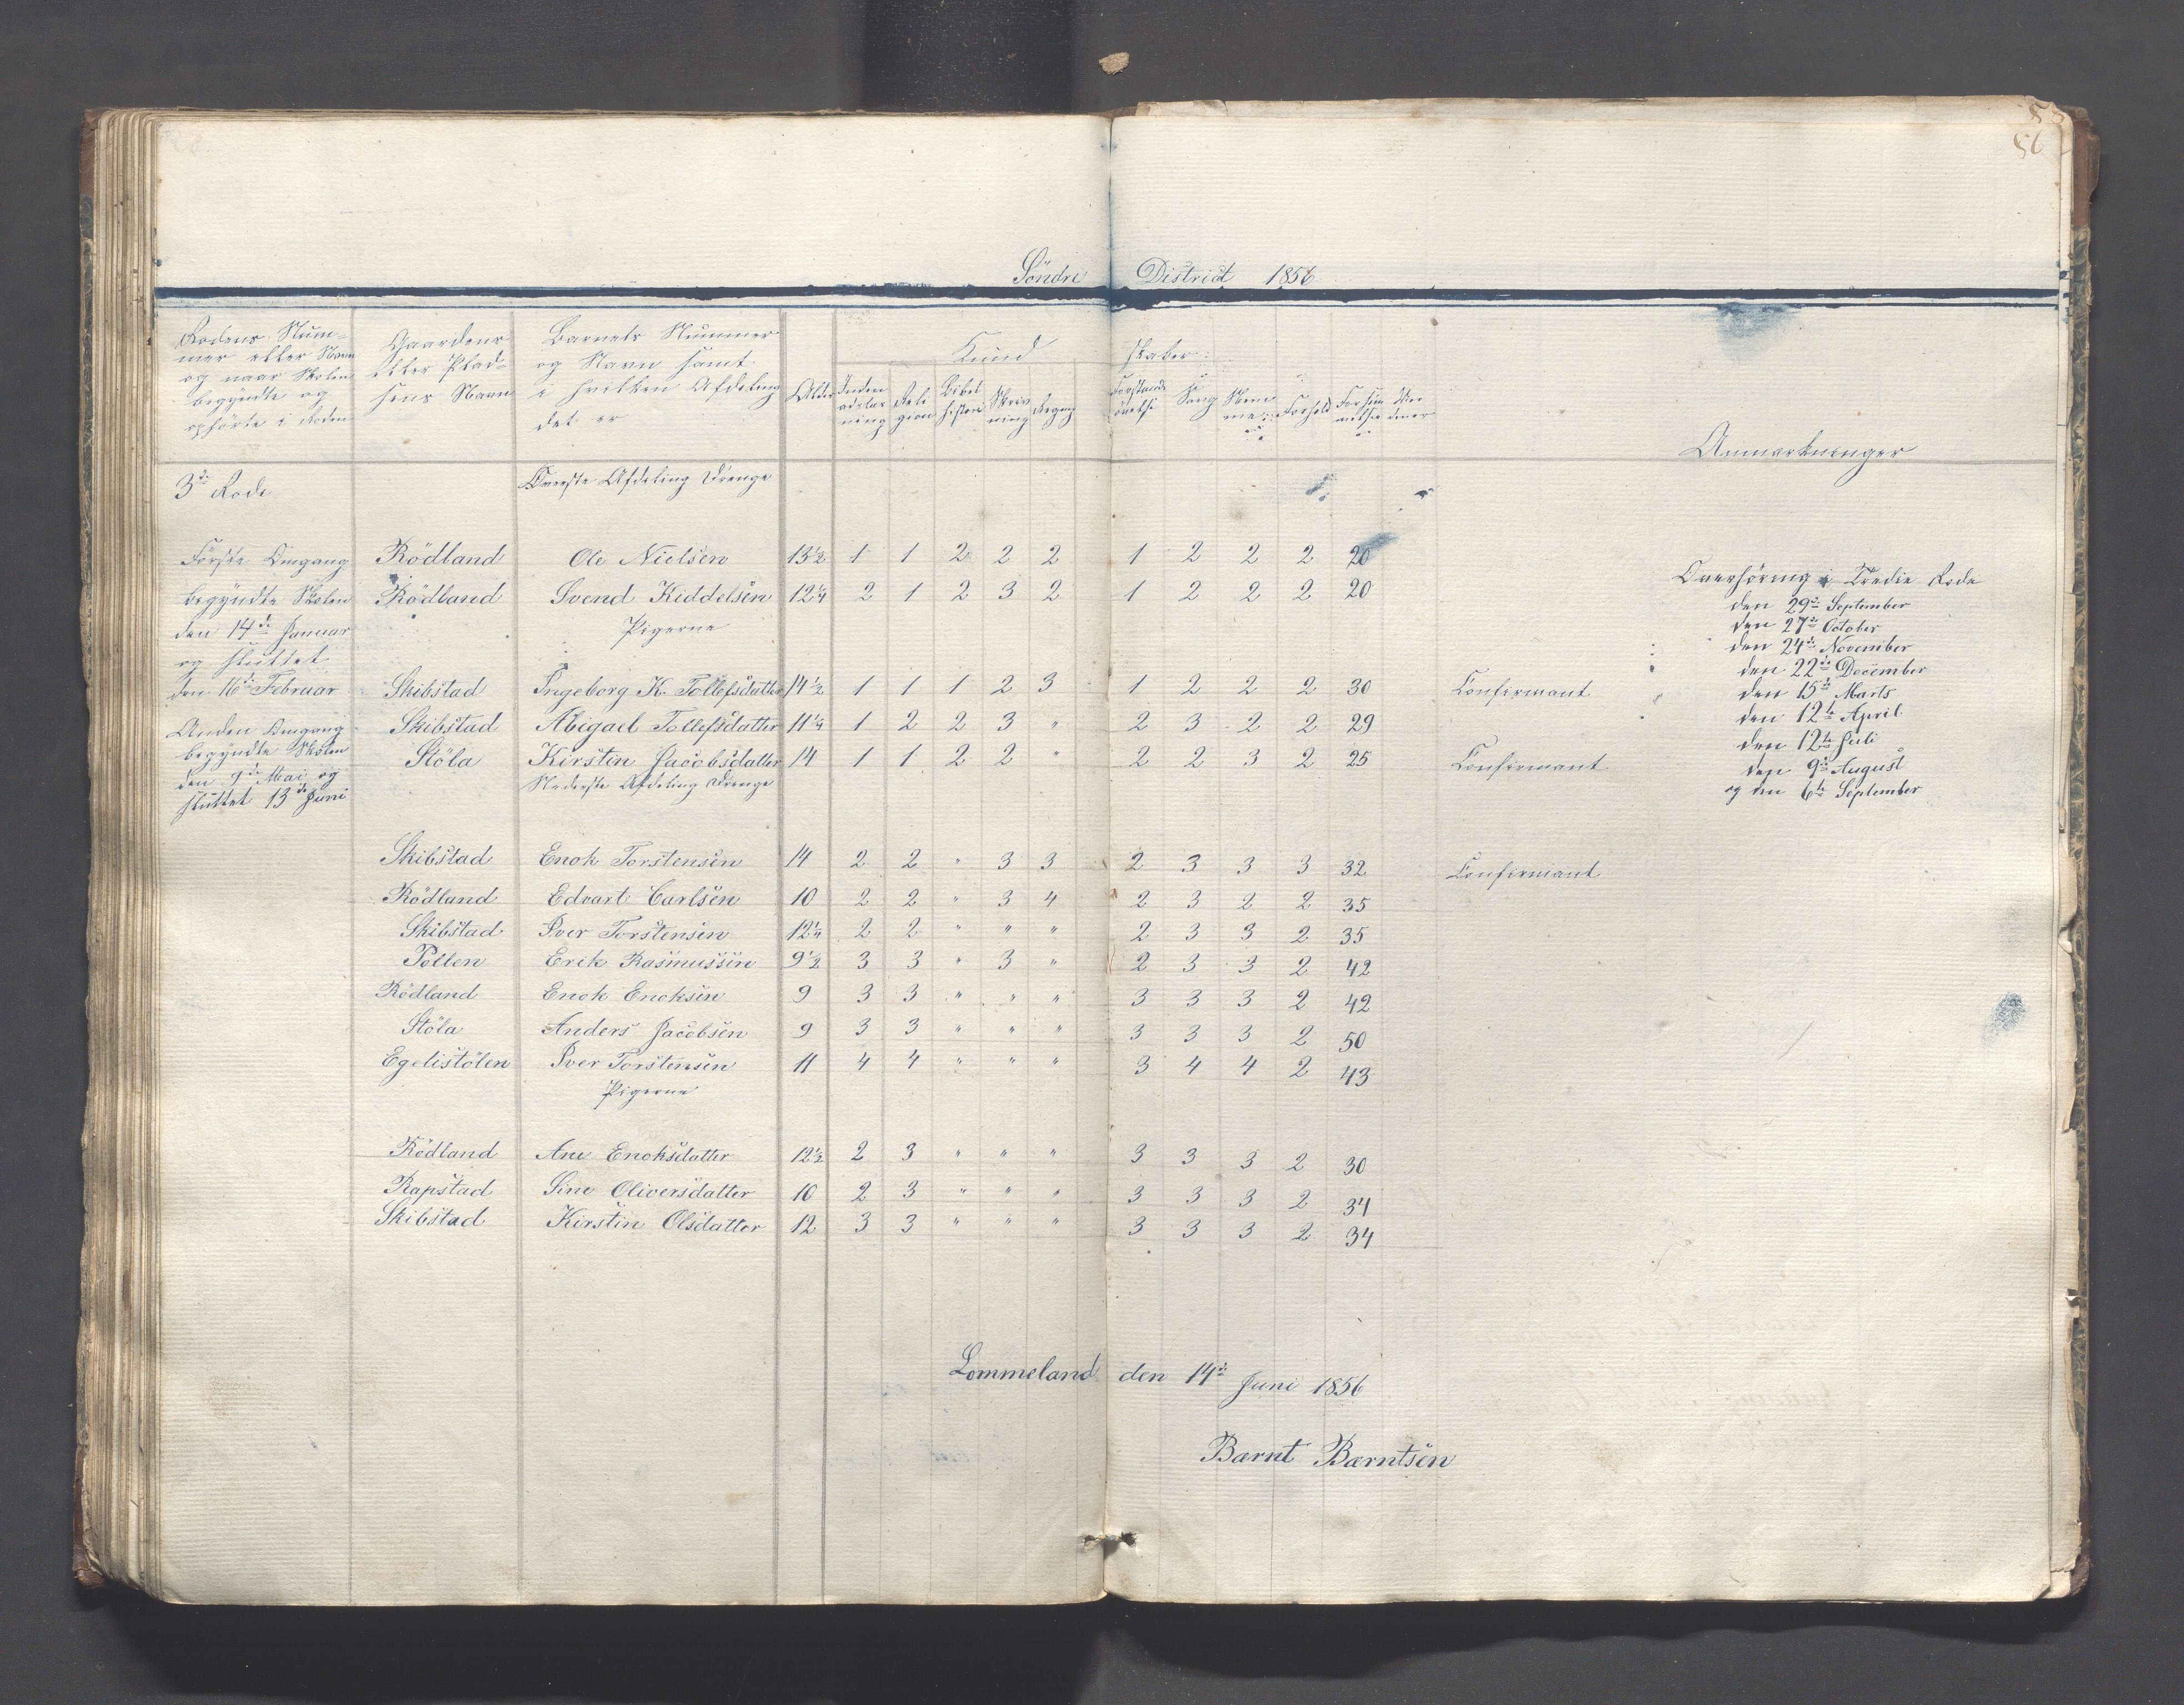 56
Söndre District 1856
Rodens Num-
mer eller Navn
og naar Skolen
begyndte og
ophörte i Roden
Gaardens
eller Plad-
sens Navn
Barnets Nummer
og Navn samt
i hvilken Afdeling
det er
Alder
Kund skaber
Inden
adslæs
ning
Reli
gion
Bibel
histori
Skriv
ning
Regng
Forstands
övelse
Sang
Nem
me
Forhold
Forsöm
melser
Anmærkninger
3die Rode
Överste Afdeling Drenge
Förste Omgang Rödland Ole Nielsen 13½ 1 1 2 2 2 1 2 2 2 20
begyndte Skolen Rödland Svend Kiddelsen 12¼ 2 1 2 3 2 1 2 2 2 20
den 14de Januar Pigerne
og sluttet
den 16de Februar Skibstad Ingeborg K. Tollefsdatter 14½ 1 1 1 2 3 1 2 2 2 30 Confirmant
Anden Omgang Skibstad Abigael Tollefsdatter 11¼ 1 2 2 3 " 2 3 2 2 29
begyndte Skolen Stöla Kirstin Jacobsdatter 14 1 1 2 2 " 2 2 3 2 25 Confirmant
den 9de Mai og Nederste Afdeling Drenge
sluttet 13de Juni
Overhöring i Tredie Rode
den 29de September
den 27de October
den 24de November
den 22de December
den 15de Marts
den 12te April
den 12te Juli
den 9de August
og den 6te September
Skibstad Enok Torstensen 14 2 2 " 3 3 2 3 3 3 32 Confirmant
Rödland Edvart Carlsen 10 2 2 " 3 4 2 3 2 2 35
Skibstad Iver Torstensen 12¼ 2 2 " " " 2 3 3 2 35
Pollen Erik Rasmussen 9½ 3 3 " 3 " 2 3 3 2 42
Rödland Enok Enoksen 9 3 3 " " " 3 3 3 2 42
Stöla Anders Jacobsen 9 3 3 " " " 3 3 3 2 50
Egelistölen Iver Torstensen 11 4 4 " " " 3 4 4 2 43
Pigerne
Rödland Ane Enoksdatter 12½ 2 3 " " " 3 3 3 2 30
Rapstad Sine Oliversdatter 10 2 3 " " " 3 3 3 2 34
Skibstad Kirstin Olsdatter 12 3 3 " " " 3 3 3 2 34
Lommeland den 14de Juni 1856
Bærnt Bærntsen